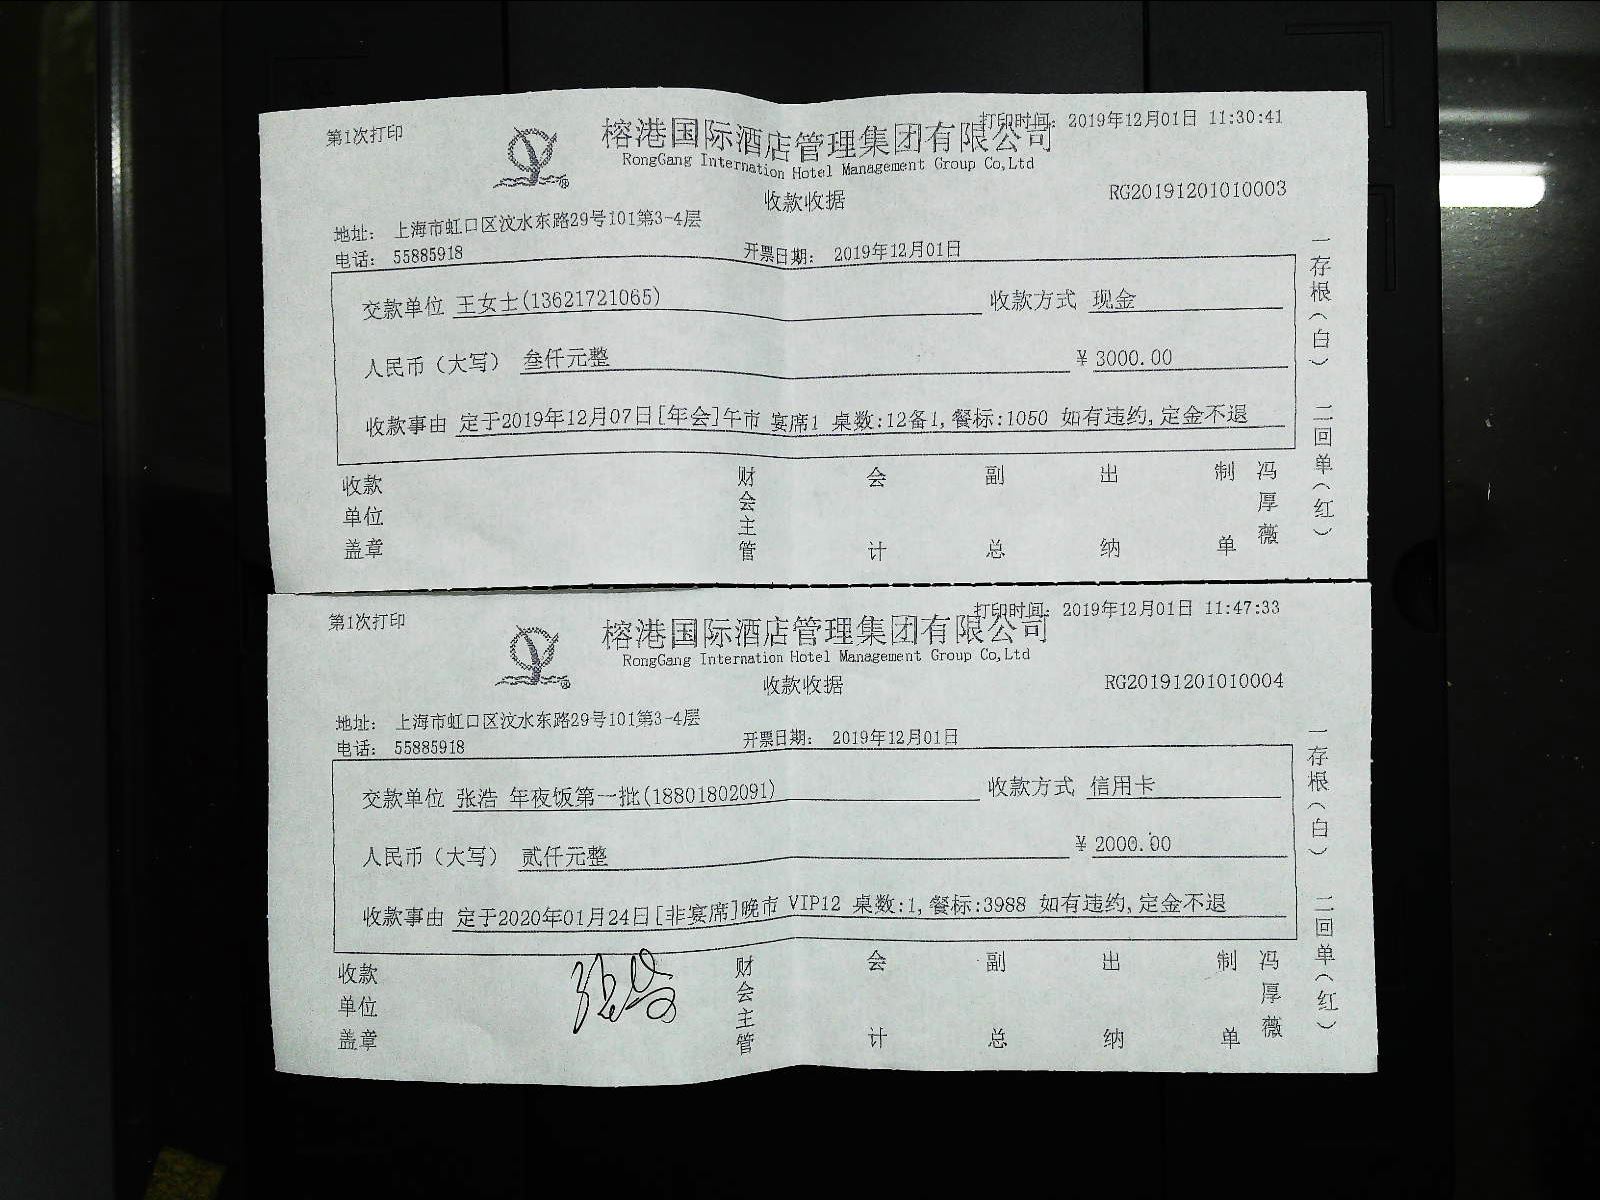 第1次打印
打印时间: 2019年12月01日 11:30:41
榕港国际酒店管理集团有限公司
RongGang Internation Hotel Management Group Co,Ltd
收款收据
RG20191201010003
地址: 上海市虹口区汶水东路29号101第3-4层
电话: 55885918
开票日期: 2019年12月01日
交款单位 王女士(13621721065) 收款方式 现金
人民币（大写） 叁仟元整 ¥ 3000.00
收款事由 定于2019年12月07日[年会]午市 宴席1 桌数:12备1,餐标:1050 如有违约,定金不退
收款单位盖章 财会主管 会计 副总 出纳 制单 冯厚薇
一存根(白) 二回单(红)
第1次打印
打印时间: 2019年12月01日 11:47:33
榕港国际酒店管理集团有限公司
RongGang Internation Hotel Management Group Co,Ltd
收款收据
RG20191201010004
地址: 上海市虹口区汶水东路29号101第3-4层
电话: 55885918
开票日期: 2019年12月01日
交款单位 张浩 年夜饭第一批(18801802091) 收款方式 信用卡
人民币（大写） 贰仟元整 ¥ 2000.00
收款事由 定于2020年01月24日[非宴席]晚市 VIP12 桌数:1,餐标:3988 如有违约,定金不退
收款单位盖章 张浩 财会主管 会计 副总 出纳 制单 冯厚薇
一存根(白) 二回单(红)